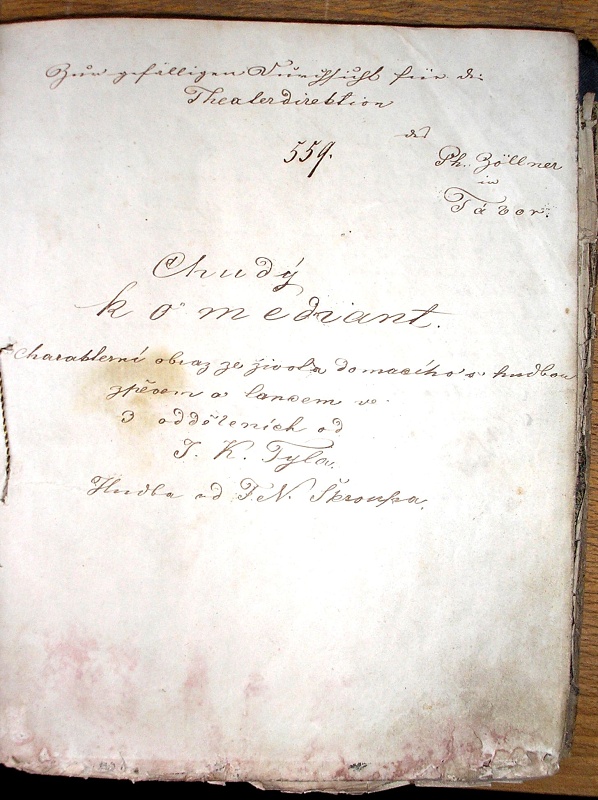 Zur gefälligen Durchsicht für die
Theaterdirektion
des
559.
Ph. Zöllner
in
Tábor.
Chudý
komediant.
Charakterní obraz ze života domacího s hudbou
zpěvem a tancem ve
3 odděleních od
J. K. Tyla.
Hudba od F. N. Škroupa.